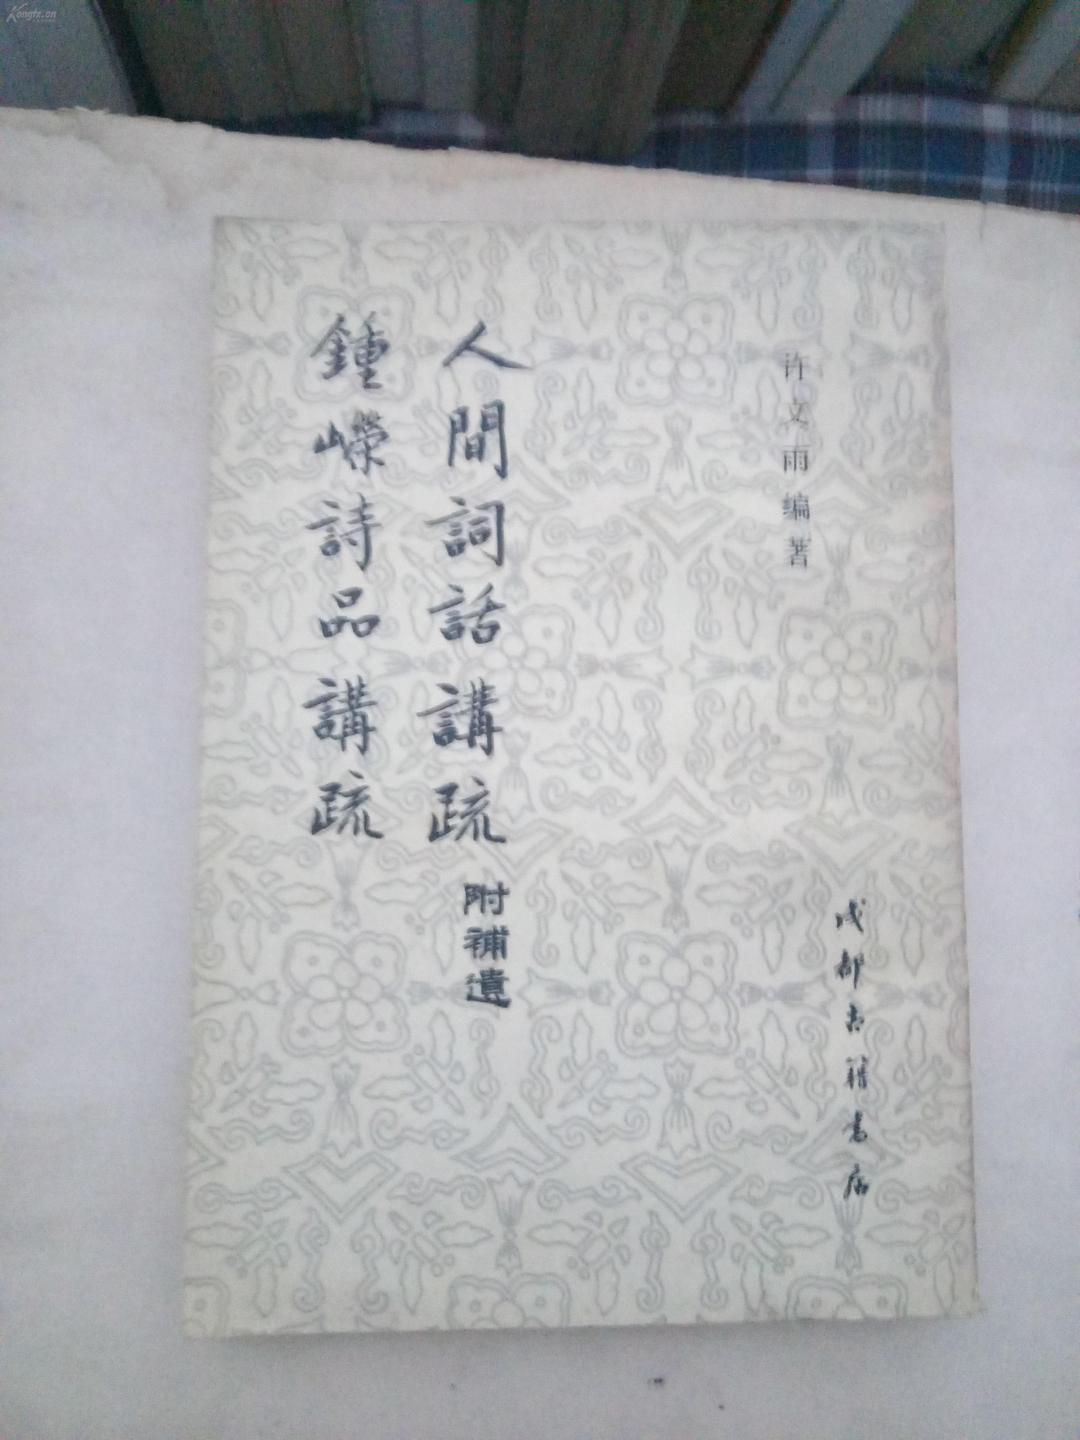 许文雨编著
人間詞話講疏 附補遺
鍾嶸詩品講疏
成都古籍書店
Kongfz.cn